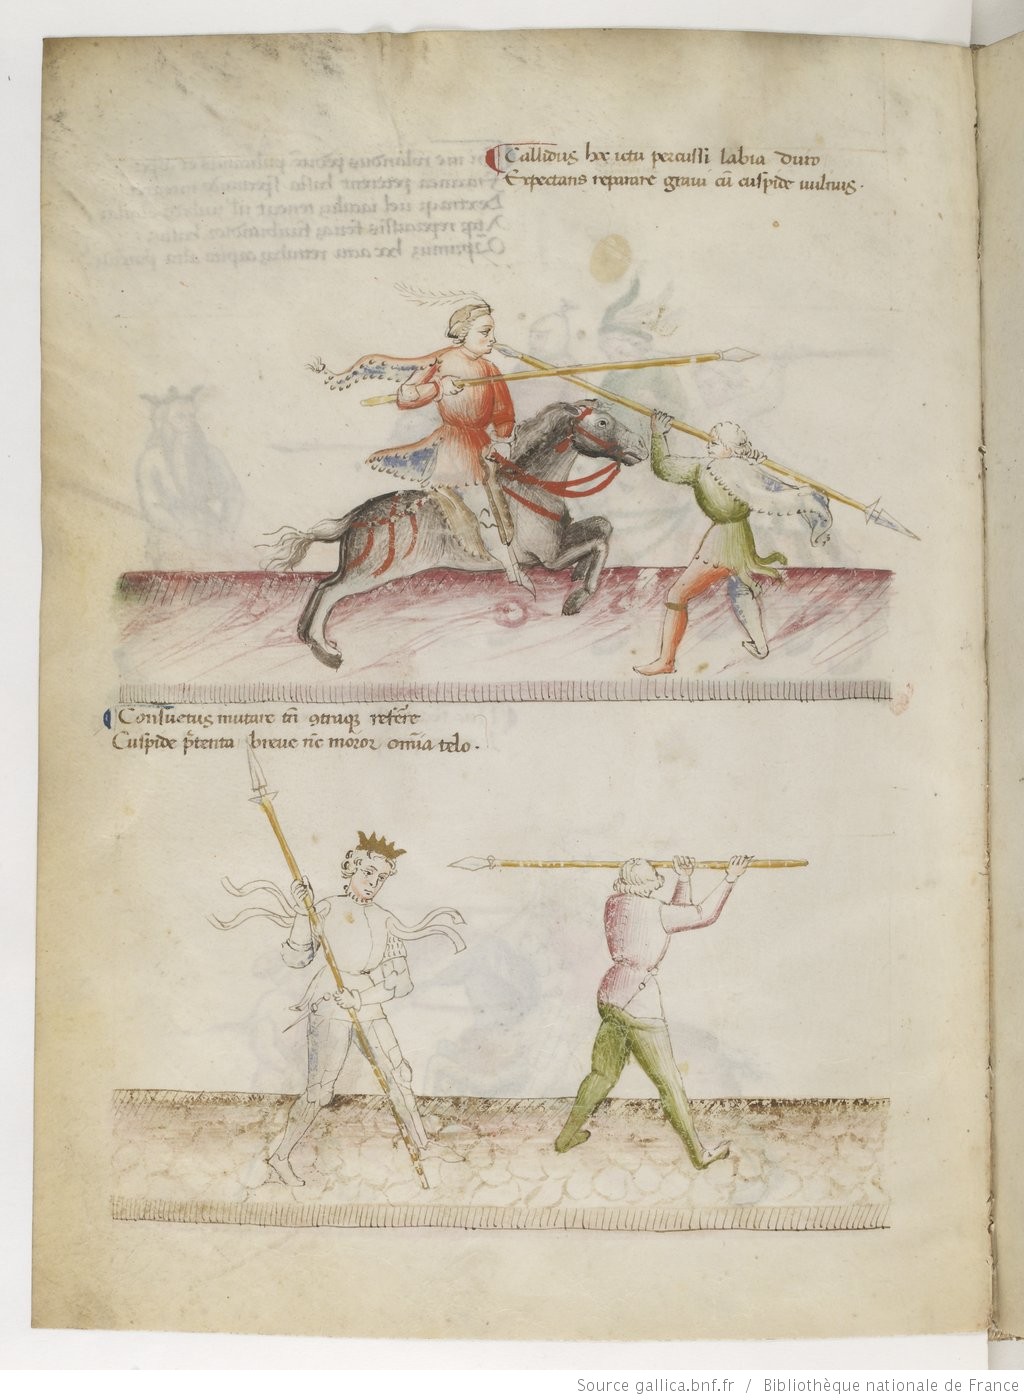 Callidus hoc ictu percussi labia duro
Expectans reparare graui cū cuspide uulnus.
Consuetus mutare tñ 9traq₃ referre
Cuspide p̄tenta breue nc̄ moror omīa telo.
Source gallica.bnf.fr / Bibliothèque nationale de France